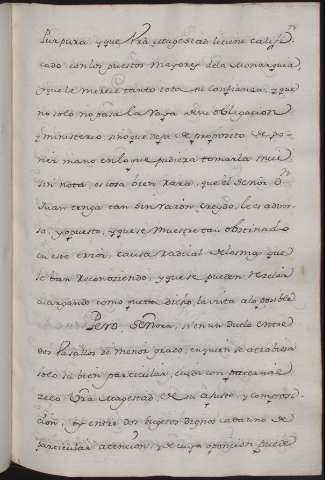 Purpura, y que Vra Magestad le tiene calif.
cado con los puestos Mayores de la Monarquia,
que le merece tanto toda su confianza, y que
no solo no pasa la raya de su obligacion
y ministerio, sino que deja de proposito de po-
ner mano en lo que pudiera tomarla mue
sin nota, es cosa bien rara, que el Señor Dn
Juan tenga tan sin razon creydo, le es adver
so, y opuesto, y que se muestre tan obstinado
en este error, causa radical de los mas que
se han reconoziendo, y que se pueden rezelar
alargando como queda dicho, la vista a lo posible
Pero, Señora, si en un duelo entre
dos Vasallos de menor grado, en quien se atrabiesa
solo su bien particular, cuida con paternal
zelo Vra Magestad, de su ajuste, y composi-
cion, oy entre dos sugetos dignos cada uno de
particular atencion, y de cuya oposicion puede